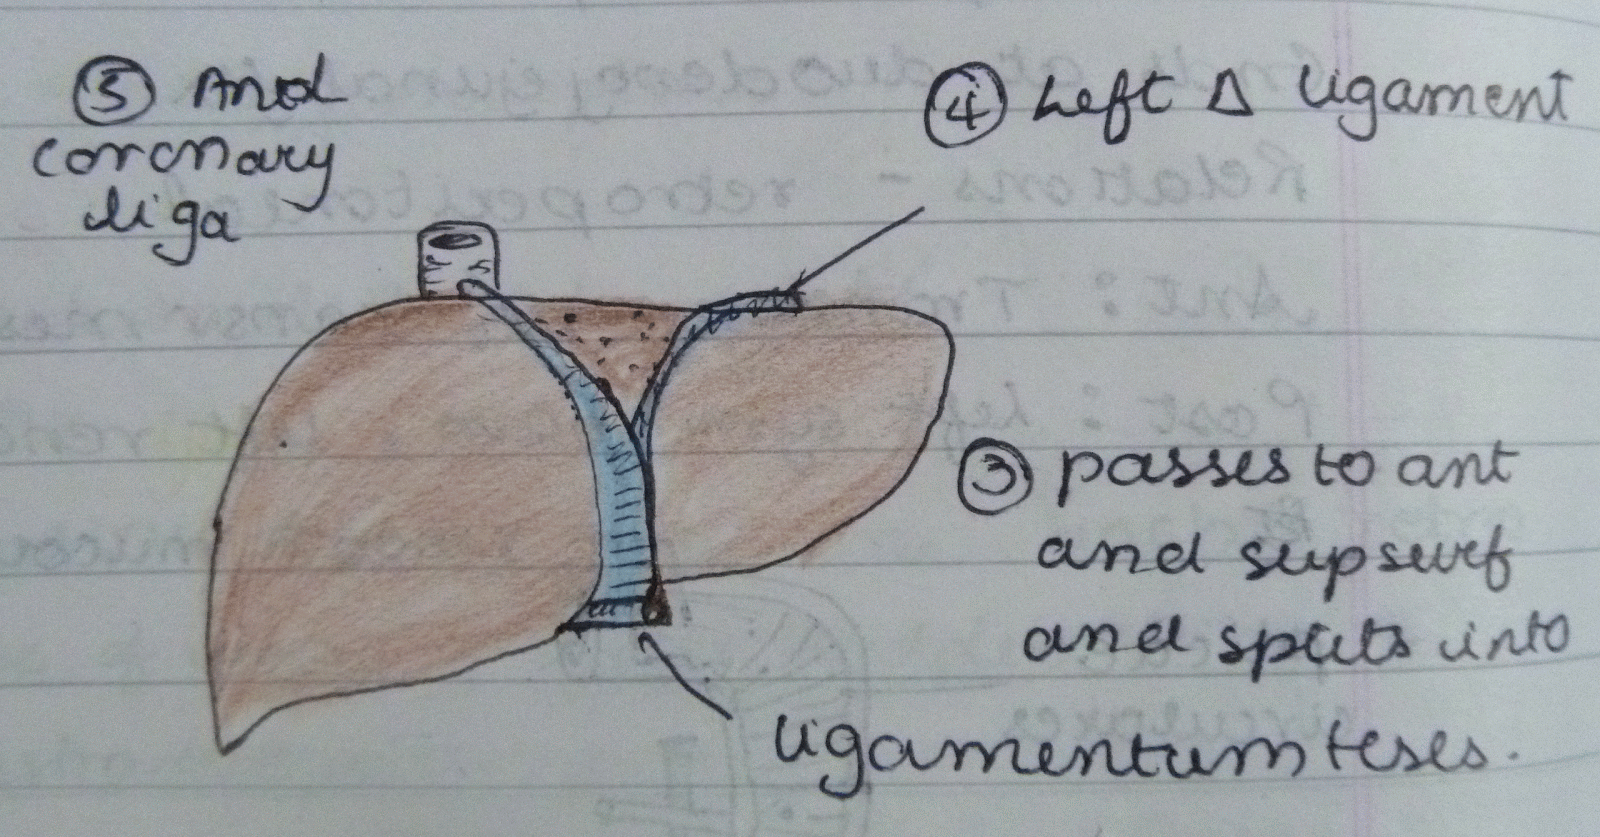 ⑤ And
coronary
liga
④ Left Δ ligament
③ passes to ant
and sup surf
and splits into
ligamentum teses.